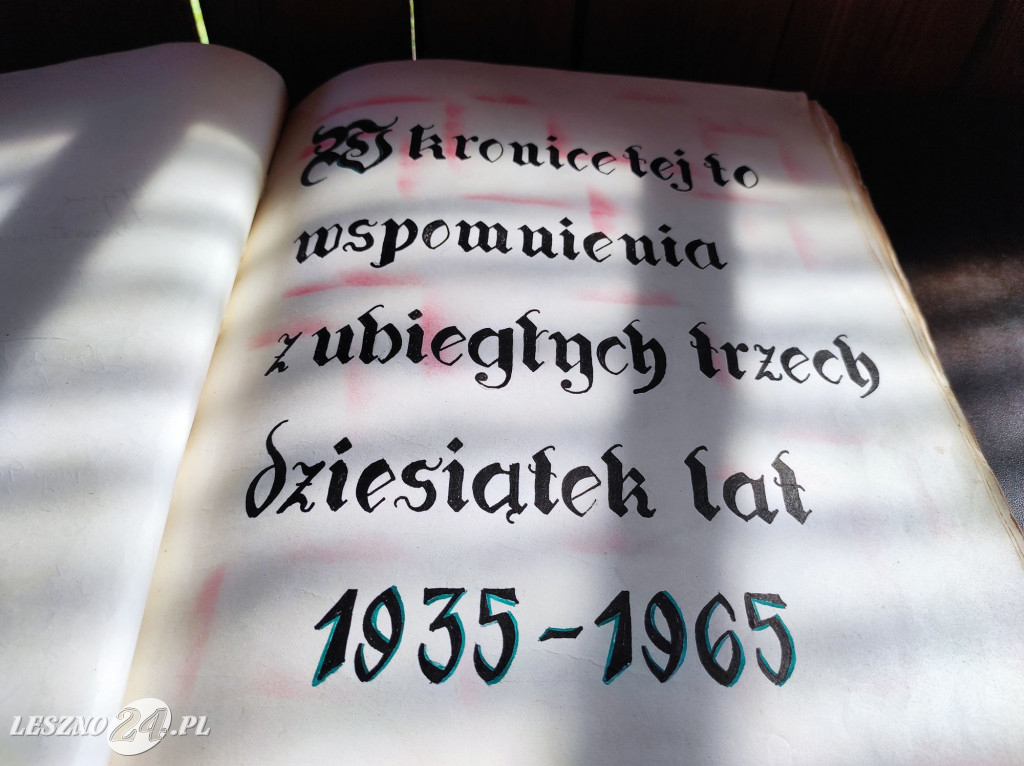 W kronice tej to
wspomnienia
z ubiegłych trzech
dziesiątek lat
1935-1965
LESZNO24.PL